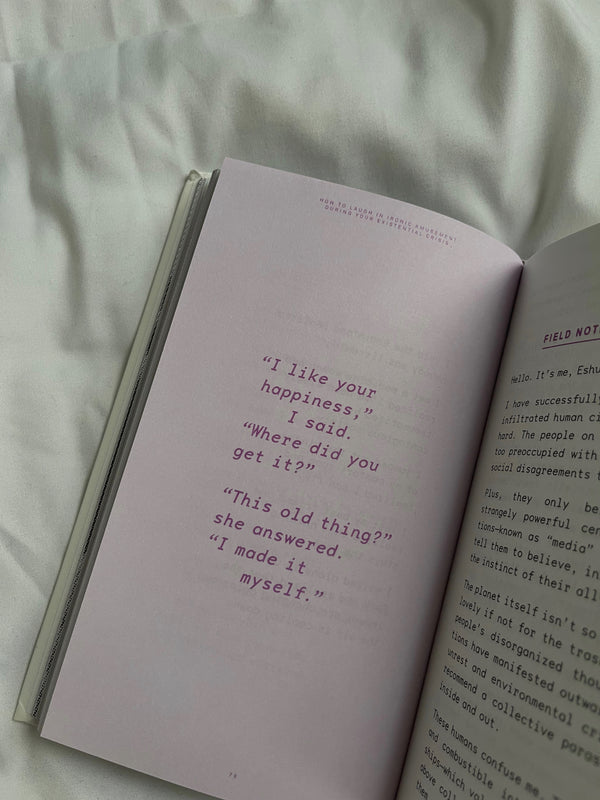 HOW TO LAUGH IN IRONIC AMUSEMENT
DURING YOUR EXISTENTIAL CRISIS
“I like your
happiness,”
I said.
“Where did you
get it?”
“This old thing?”
she answered.
“I made it
myself.”
FIELD
Hello. It's me, Eshu
I have successfully
infiltrated human
hard. The people on
too preoccupied with
social disagreements
Plus, they only be
strangely powerful
tions—known as “media”
tell them to believe, in
the instinct of their all
The planet itself isn't so
lovely if not for the
people's disorganized
tions have manifested
unrest and environmental
recommend a collective
inside and out.
These humans confuse me.
and combustible
ships—which
above
them